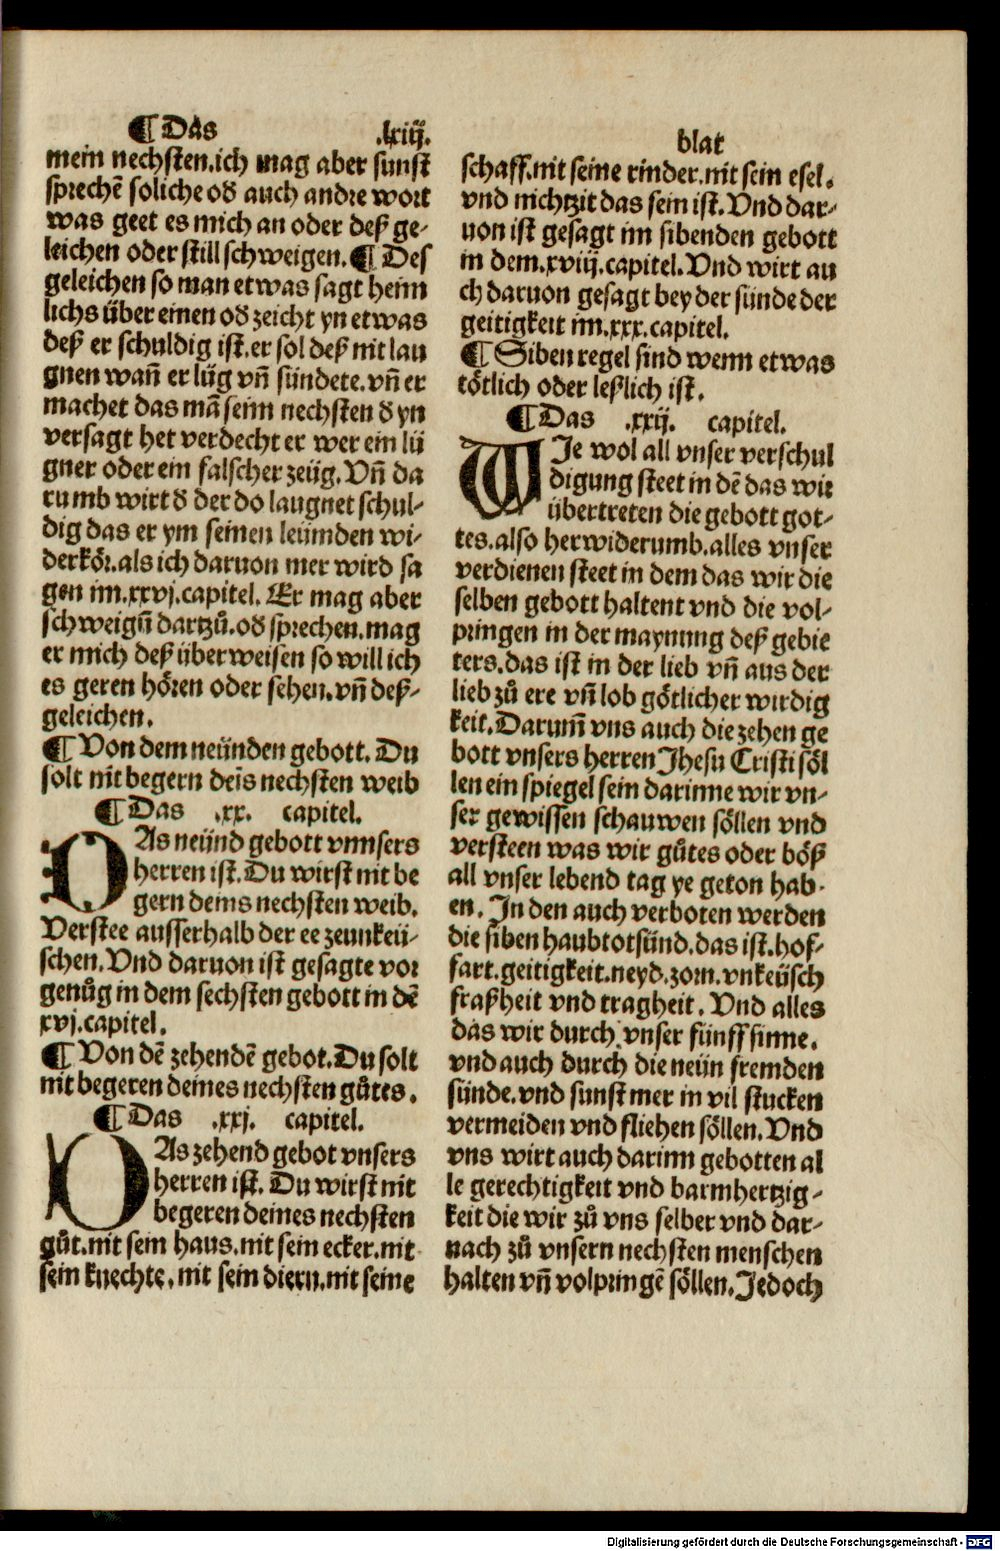 ¶ Das .lxiij. blat
mein nechsten.ich mag aber sunst
sprechē soliche oď auch andre wort
was geet es mich an oder deß ge-
leichen oder still schweigen.¶ Des
geleichen so man etwas sagt heim
lichs über einen oď zeicht yn etwas
deß er schuldig ist.er sol deß nit lau
gnen wañ er lüg vñ sündete.vñ er
machet das mā seim nechsten ď yn
versagt het verdecht er wer ein lü
gner oder ein falscher zeüg.Vñ da
rumb wirt ď der do laugnet schul-
dig das er ym seinen leümden wi-
derkör.als ich daruon mer wird sa
gen im.xxvj.capitel. Er mag aber
schweigū dartzů.oď sprechen.mag
er mich deß überweisen so will ich
es geren hören oder sehen.vñ deß-
geleichen.
¶ Von dem neünden gebott. Du
solt nit begern deīs nechsten weib
¶ Das .xx. capitel.
DAs neünd gebott vnnsers
herren ist.Du wirst nit be
gern deins nechsten weib.
Verstee ausserhalb der ee zeunkeü-
schen.Vnd daruon ist gesagte vor
genůg in dem sechsten gebott in dē
xvj.capitel.
¶ Von dē zehendē gebot.Du solt
nit begeren deines nechsten gůtes.
¶ Das .xxj. capitel.
DAs zehend gebot vnsers
herren ist. Du wirst nit
begeren deines nechsten
gůt.nit sein haus.nit sein ecker.nit
sein knechte.nit sein diern.nit seine
schaff.nit seine rinder.nit sein esel.
vnd nichtzit das sein ist.Vnd dar-
uon ist gesagt im sibenden gebott
in dem.xviij.capitel.Vnd wirt au
ch daruon gesagt bey der sünde der
geitigkeit im.xxx.capitel.
¶ Siben regel sind wenn etwas
tötlich oder leßlich ist.
¶ Das .xxij. capitel.
WJe wol all vnser verschul
digung steet in dē das wir
übertreten die gebott got-
tes.also herwiderumb.alles vnser
verdienen steet in dem das wir die
selben gebott haltent vnd die vol-
pringen in der maynung deß gebie
ters.das ist in der lieb vñ aus der
lieb zů ere vñ lob götlicher wirdig
keit.Darum̄ vns auch die zehen ge
bott vnsers herren Jhesu Cristi söl
len ein spiegel sein darinne wir vn-
ser gewissen schauwen söllen vnd
versteen was wir gůtes oder böß
all vnser lebend tag ye geton hab-
en. Jn den auch verboten werden
die siben haubtotsünd.das ist.hof-
fart.geitigkeit.neyd.zorn.vnkeüsch
fraßheit vnd tragheit. Vnd alles
das wir durch vnser fünff sinne.
vnd auch durch die neün fremden
sünde.vnd sunst mer in vil stucken
vermeiden vnd fliehen söllen.Vnd
vns wirt auch darinn gebotten al
le gerechtigkeit vnd barmhertzig-
keit die wir zů vns selber vnd dar-
nach zů vnsern nechsten menschen
halten vñ volpringē söllen.Jedoch
Digitalisierung gefördert durch die Deutsche Forschungsgemeinschaft - DFG